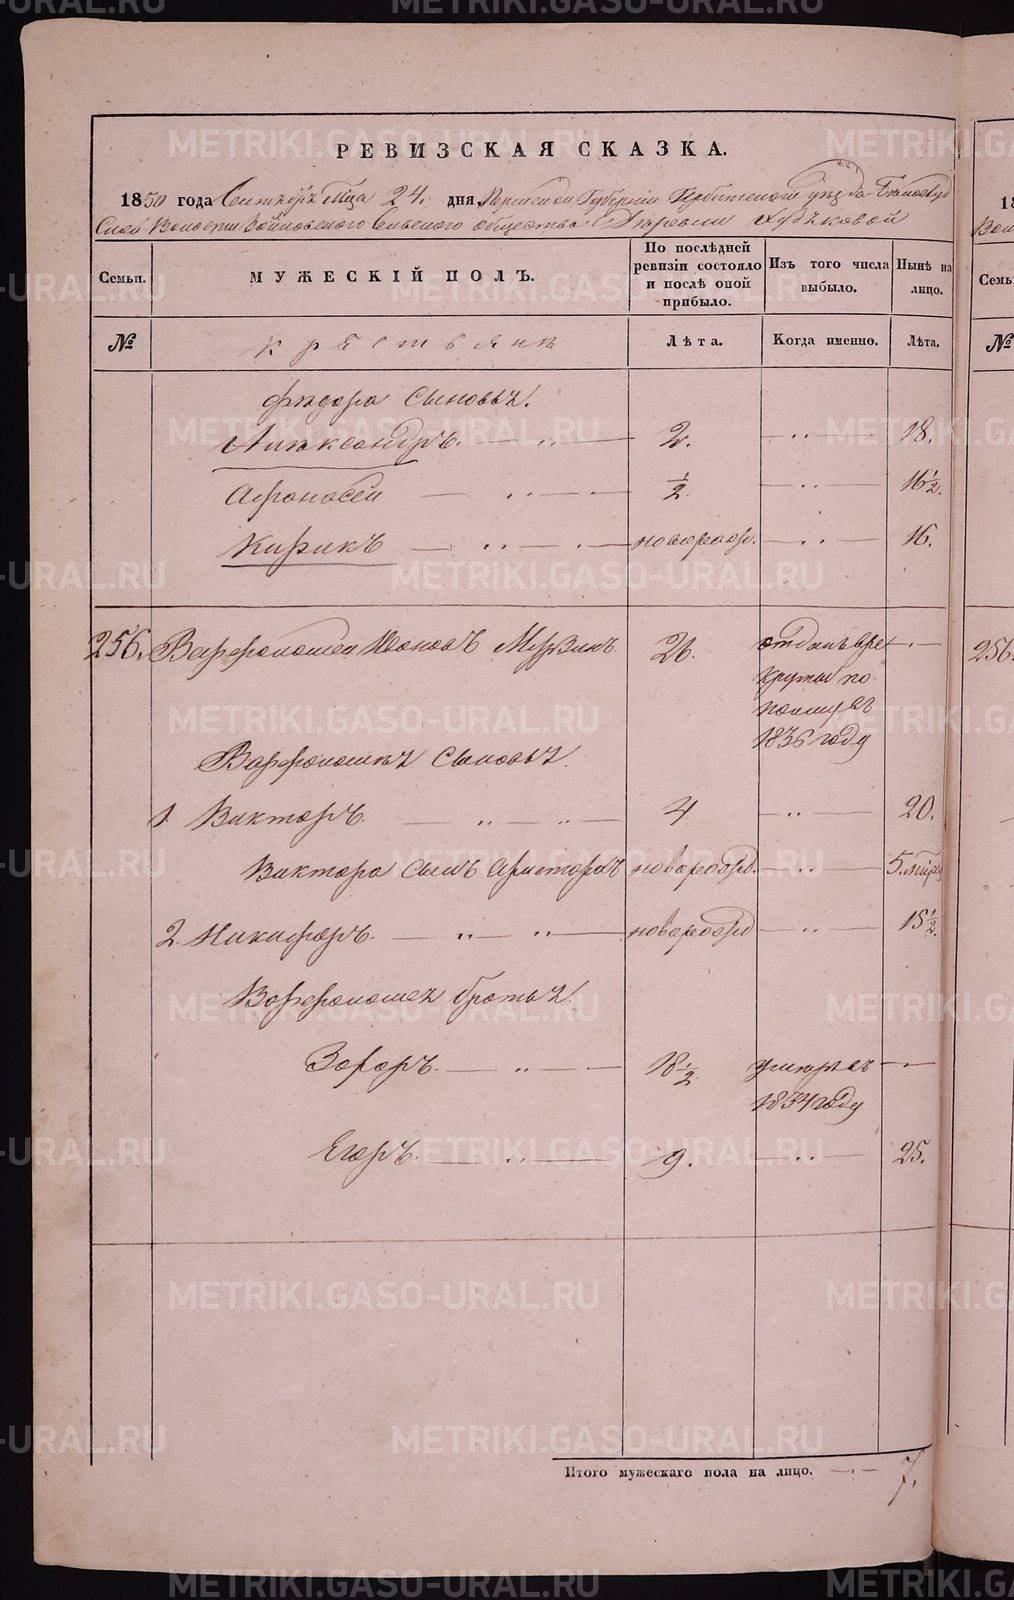 METRIKI.GASO-URAL.RU
РЕВИЗСКАЯ СКАЗКА.
1850 года Сентября М҃ца 24. дня, Пермской Губернiи Ирбитскаго уезда Белослуд
ской Волости Сельскаго общества Деревни Худяковой
Семьи. МУЖЕСКIЙ ПОЛЪ. По послѣдней ревизiи состояло и послѣ оной прибыло. Изъ того числа выбыло. Нынѣ на лицо.
№ крестьяне Лѣта. Когда именно. Лѣта.
Федора сыновья.
Александръ. 2. 18.
Афонасей ½ 16½.
Кирикъ новорожд. 16.
256. Варфоломей Ивановъ Мурзинъ 26. отданъ в ре
круты по
1836 году
Варфоломея сыновья.
1. Викторъ. 4 20.
Виктора сынъ новорожд. 5. м
2. Никифоръ. новорожд 15½.
Варфоломея братья.
Захаръ. 18½. умеръ въ
1834 году
Егоръ. 9. 25.
Итого мужескаго пола на лицо. 7.
256.